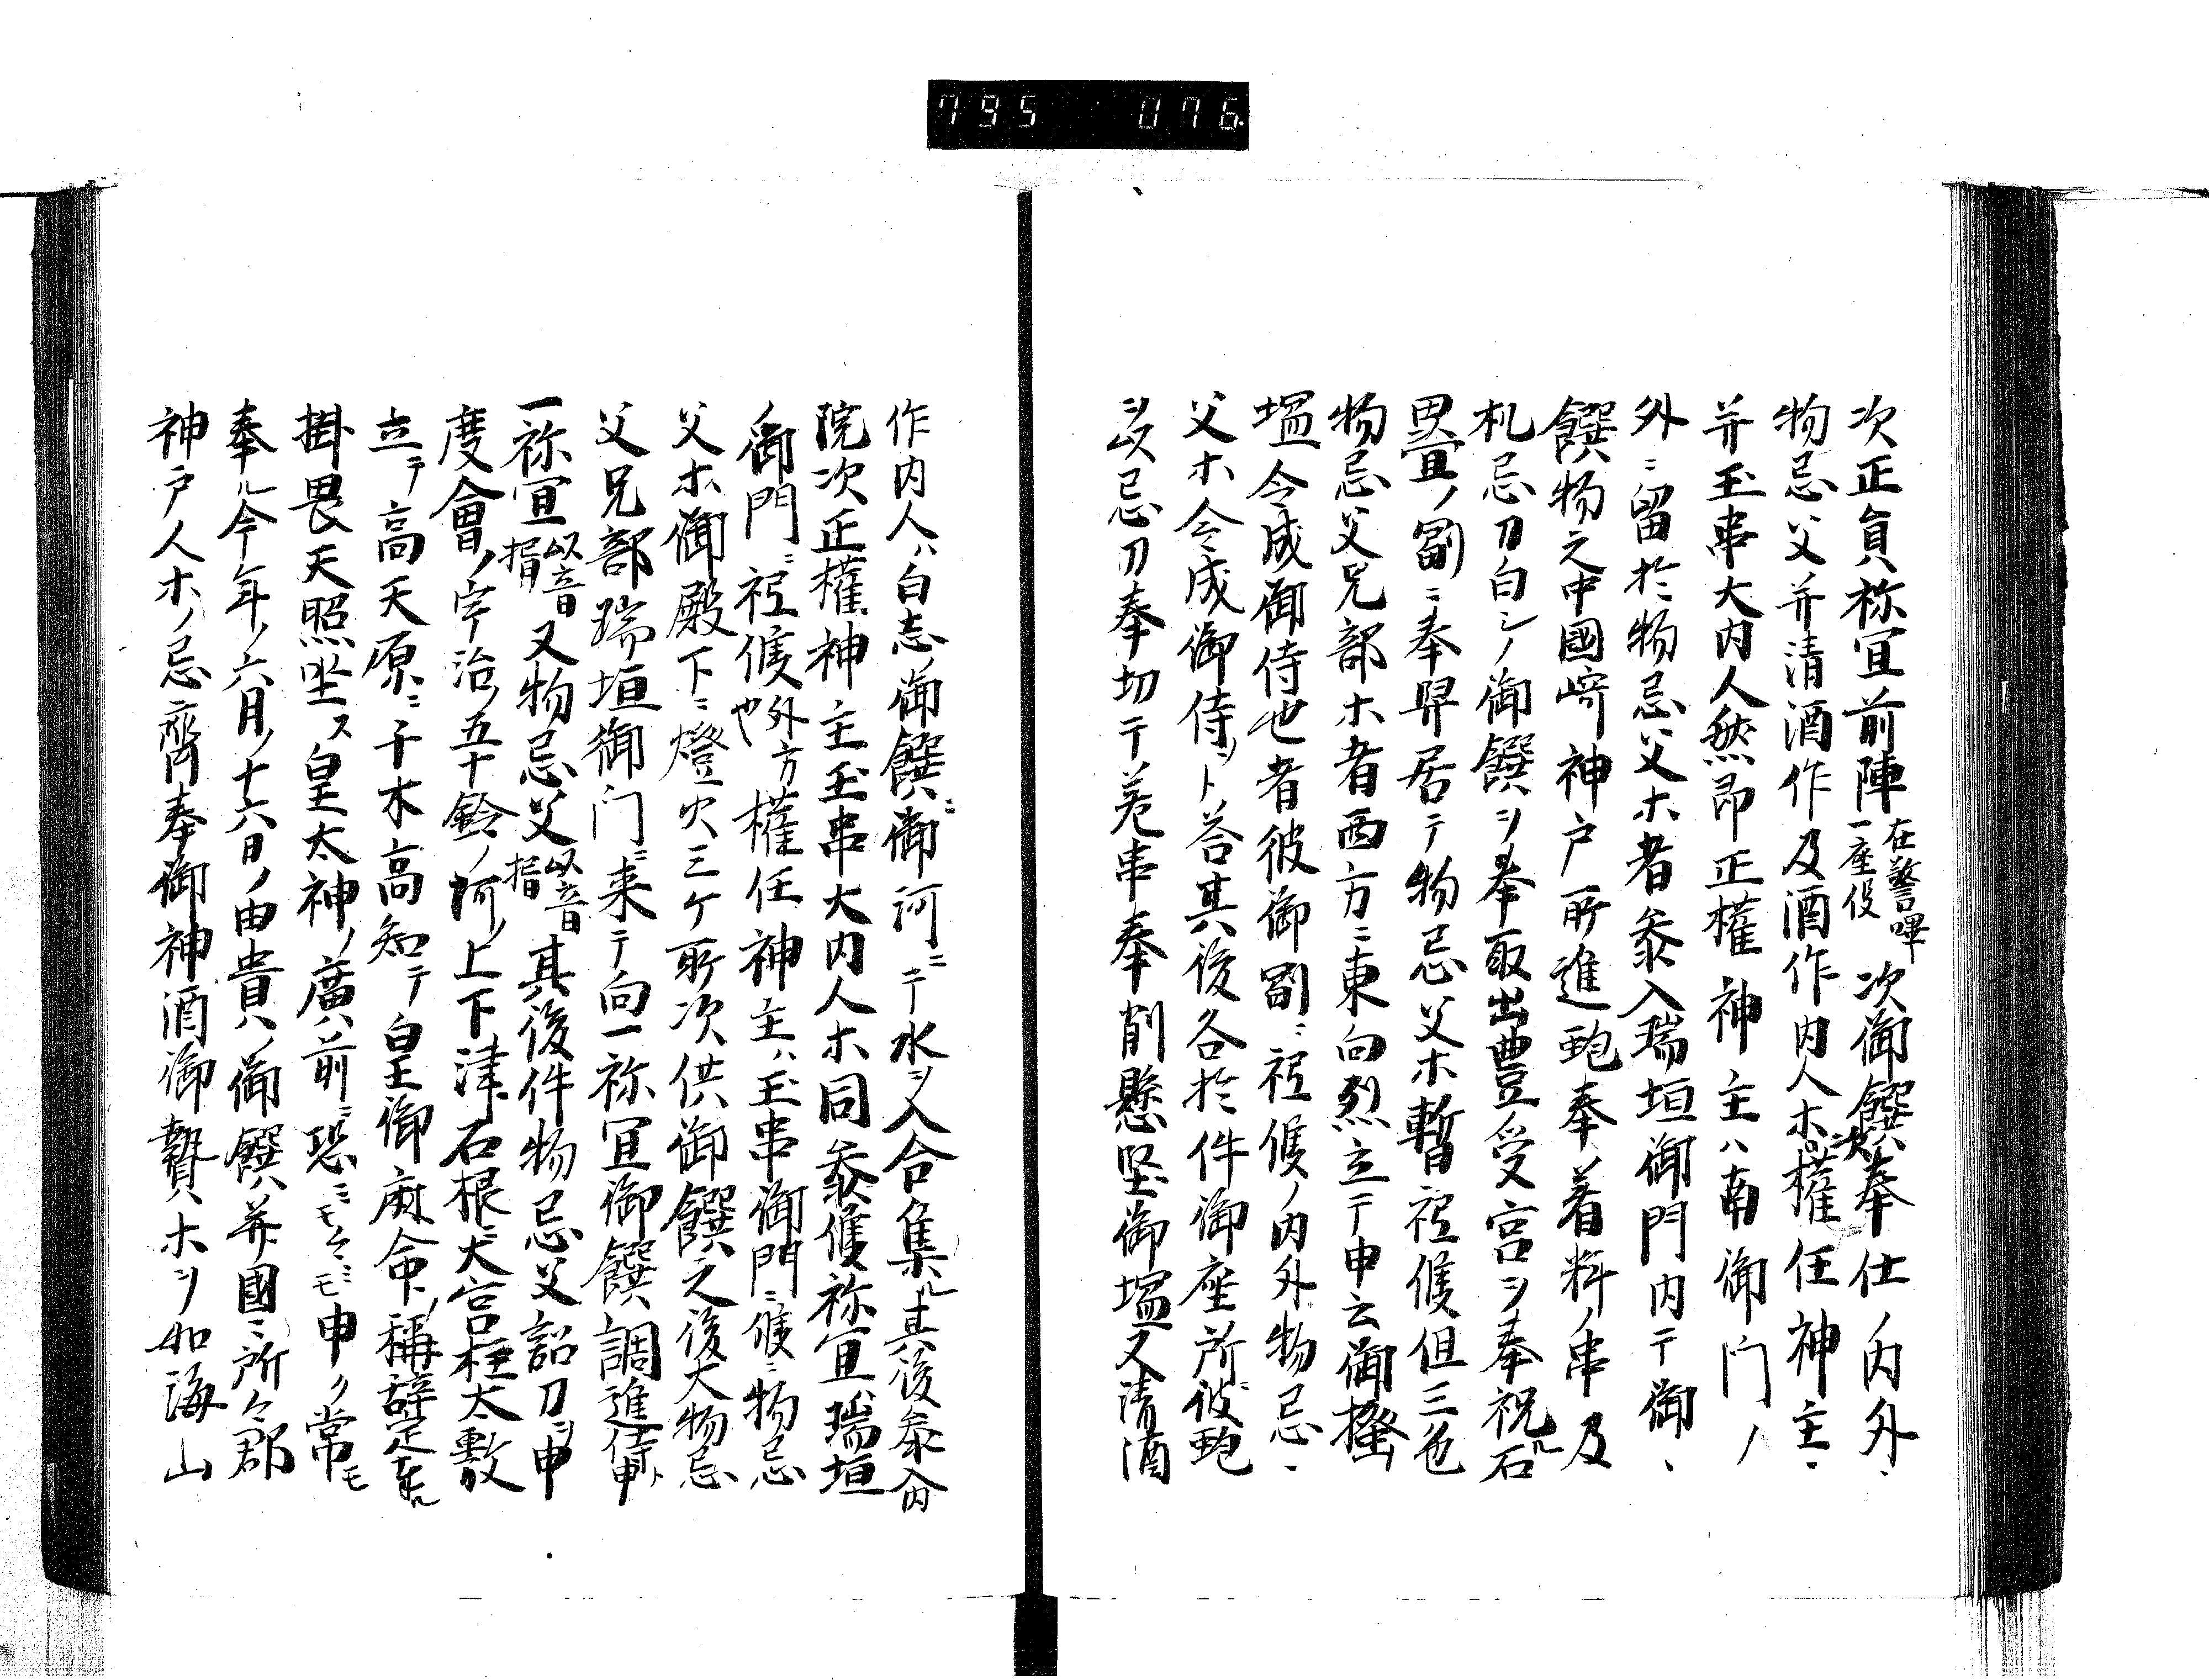 795 076
次正員祢宜前陣在警蹕一座役次御饌奉仕ノ内外、
物忌父并清酒作及酒作内人ホ次權任神主、
并玉串大内人然即正權神主ハ南御门ノ
外ニ留於物忌父ホ者參入瑞垣御門内テ御、
饌物之中國崎神戸所進鮑奉着料ノ串及
札忌刀白シノ御饌ヲ奉取出豊受宮ヲ奉祝ル石
疊ノ㔍ニ奉舁居テ物忌父ホ暫祗候但三色
物忌父兄部ホ者西方ニ東向烈立テ申云御
塩令成御侍也者彼御㔍ニ祗候ノ内外物忌、
父ホ令成御侍ヲト荅其後各於件御座所彼鮑
ヲ以忌刀奉切テ羌串奉削懸堅御塩又清酒
作内人ハ白志ノ御饌ニ御河ニテ水ヲ入合集ル其後參内
院次正權神主玉串大内人ホ同參候祢宜瑞垣
ノ御門ニ祗候外方也權任神主ハ玉串御門ニ候ニ物忌
父ホ御殿下ニ燈火三ケ所次供御饌之後大物忌
父兄部瑞垣御门ニ来テ向一祢宜御饌調進侍ト申
一祢宜以音揖又物忌父以音揖其後件物忌父詔刀ヲ申
度會ノ宇治ノ五十鈴ノ河ノ上下津石根ニ大宮柱太敷
立テ高天原ニ千木高知テ皇御麻命ノ稱辞定奉ル
掛畏天照坐ス皇太神ノ廣前ニ恐ミモ々ミモ申ク常モ
奉ル今年ノ六月ノ十六日ノ由貴ノ御饌并國ニ所々郡
神戸人ホノ忌齊奉御神酒御贄ホヲ如海山